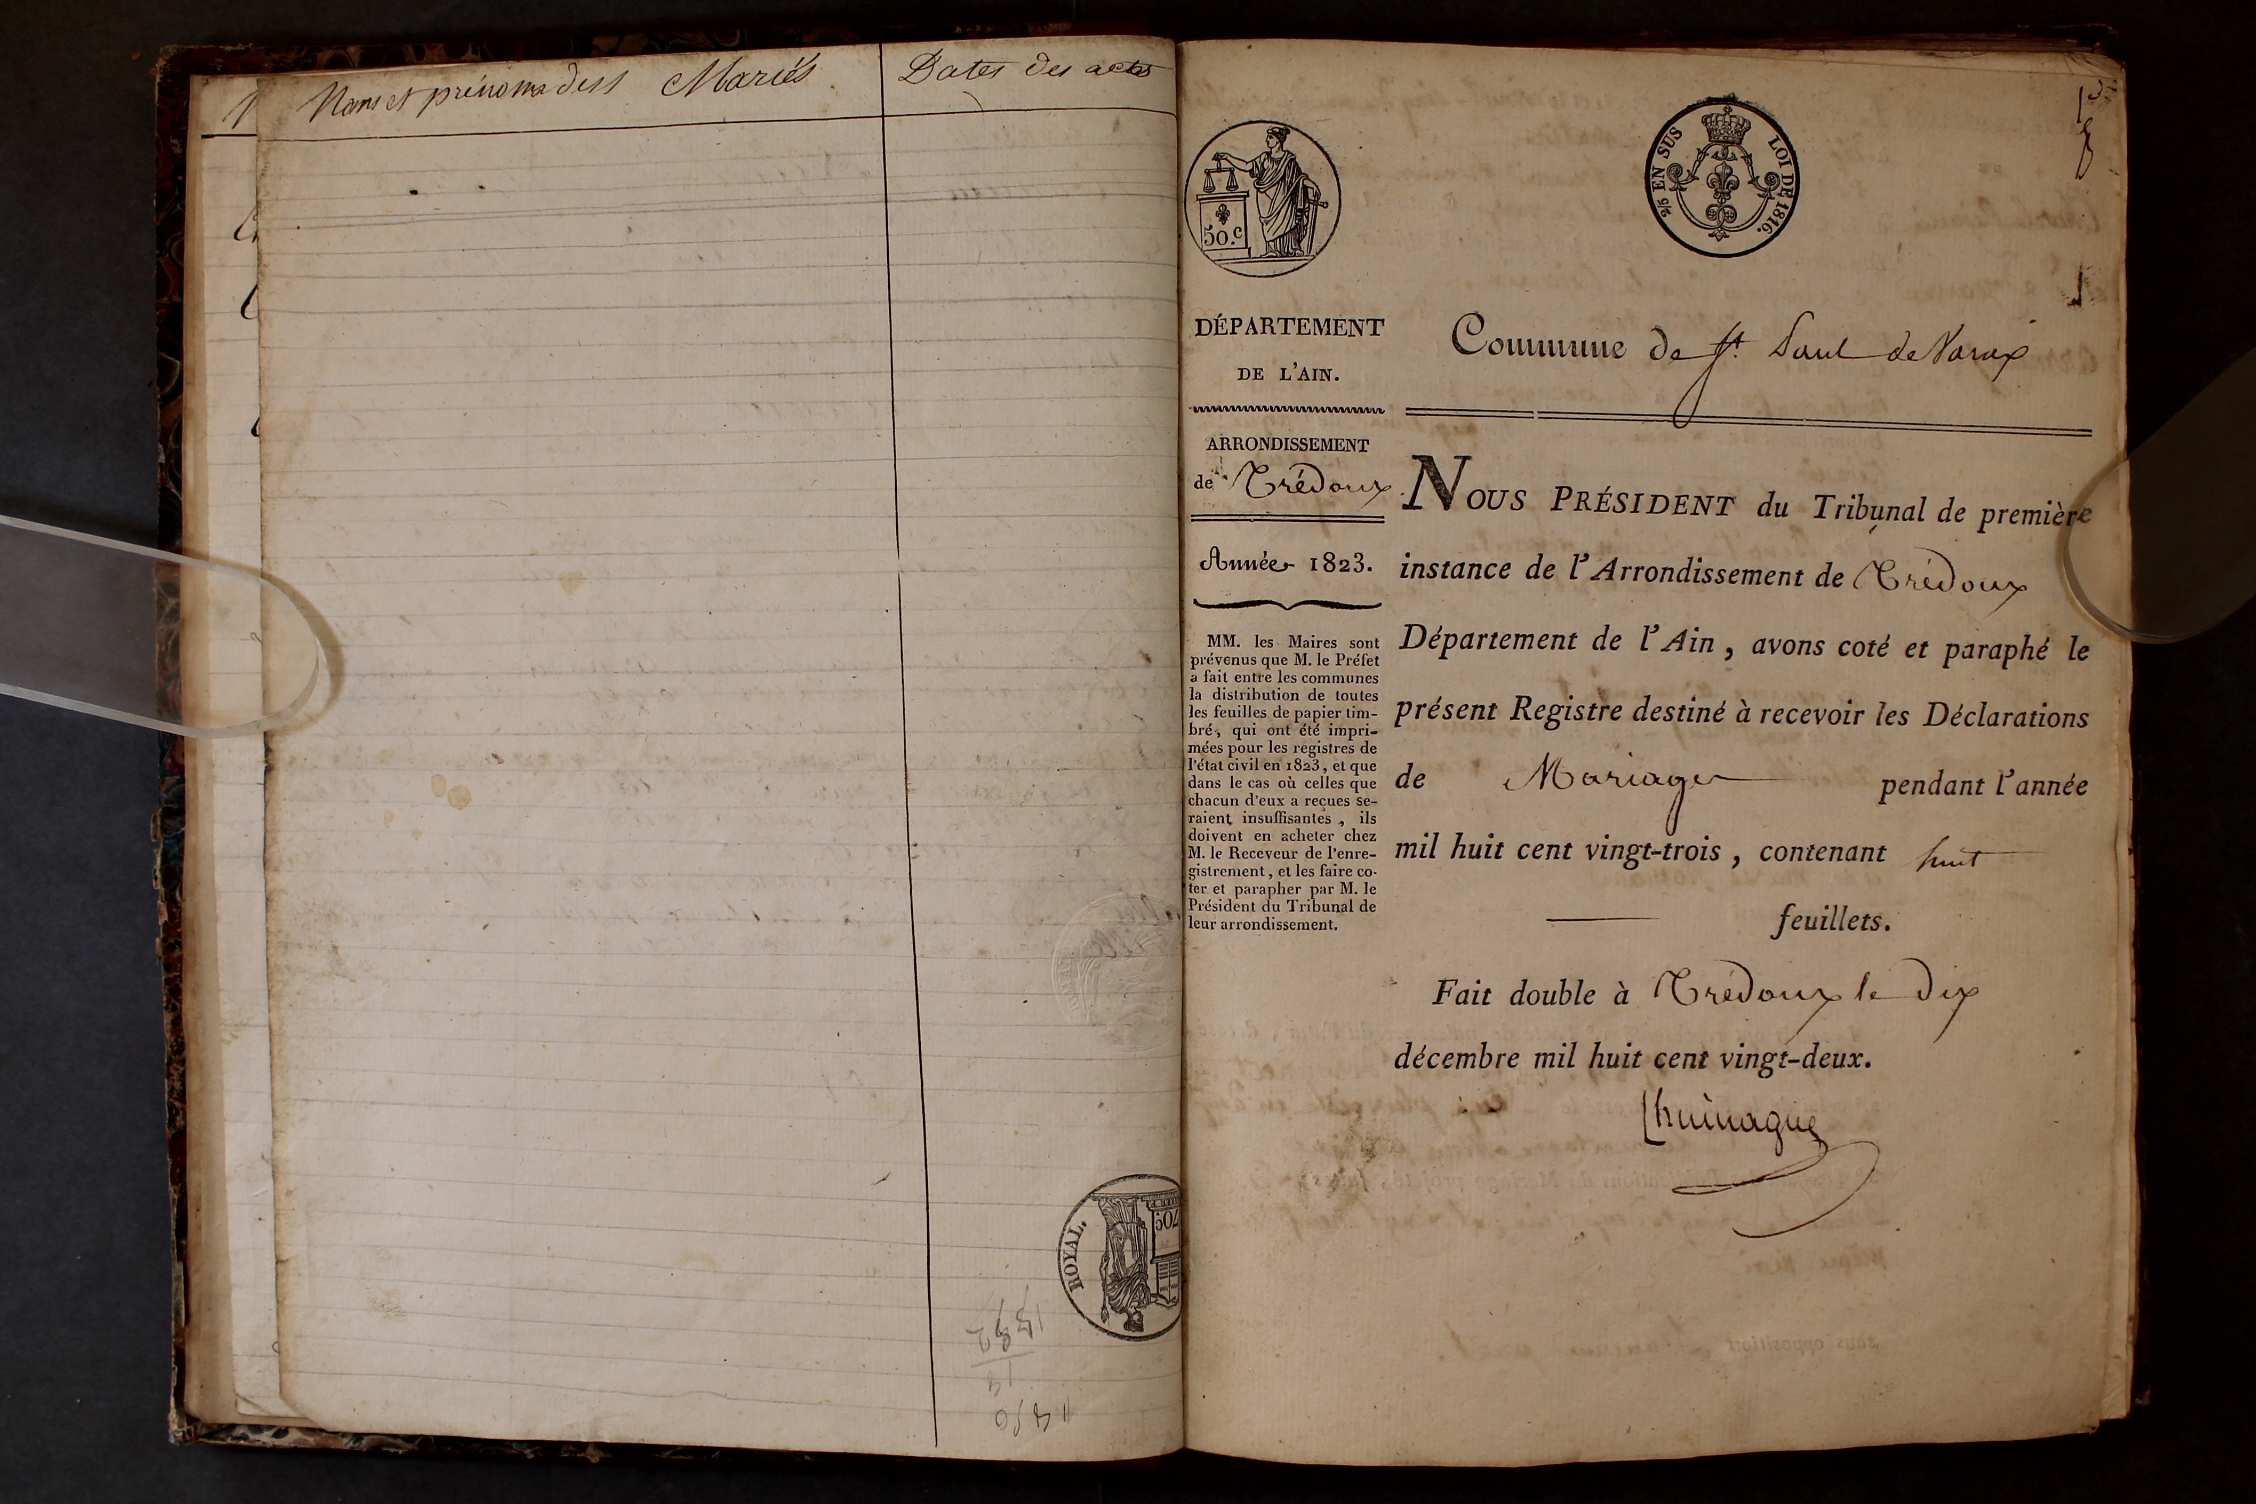 Noms et prénoms des Mariés
Dates des actes
ROYAL.
50.c
2/5 EN SUS
LOI DE 1816.
1er
8
DÉPARTEMENT
DE L'AIN.
ARRONDISSEMENT
de Trédoux
Année 1823.
MM. les Maires sont
prévenus que M. le Préfet
a fait entre les communes
la distribution de toutes
les feuilles de papier tim-
bré, qui ont été impri-
mées pour les registres de
l'état civil en 1823, et que
dans le cas où celles que
chacun d'eux a reçues se-
raient insuffisantes, ils
doivent en acheter chez
M. le Receveur de l'enre-
gistrement, et les faire co-
ter et parapher par M. le
Président du Tribunal de
leur arrondissement.
Commune de St. Paul de Varax
NOUS PRÉSIDENT du Tribunal de première
instance de l'Arrondissement de Trédoux
Département de l'Ain, avons coté et paraphé le
présent Registre destiné à recevoir les Déclarations
de Mariages pendant l'année
mil huit cent vingt-trois, contenant huit
feuillets.
Fait double à Trédoux le dix
décembre mil huit cent vingt-deux.